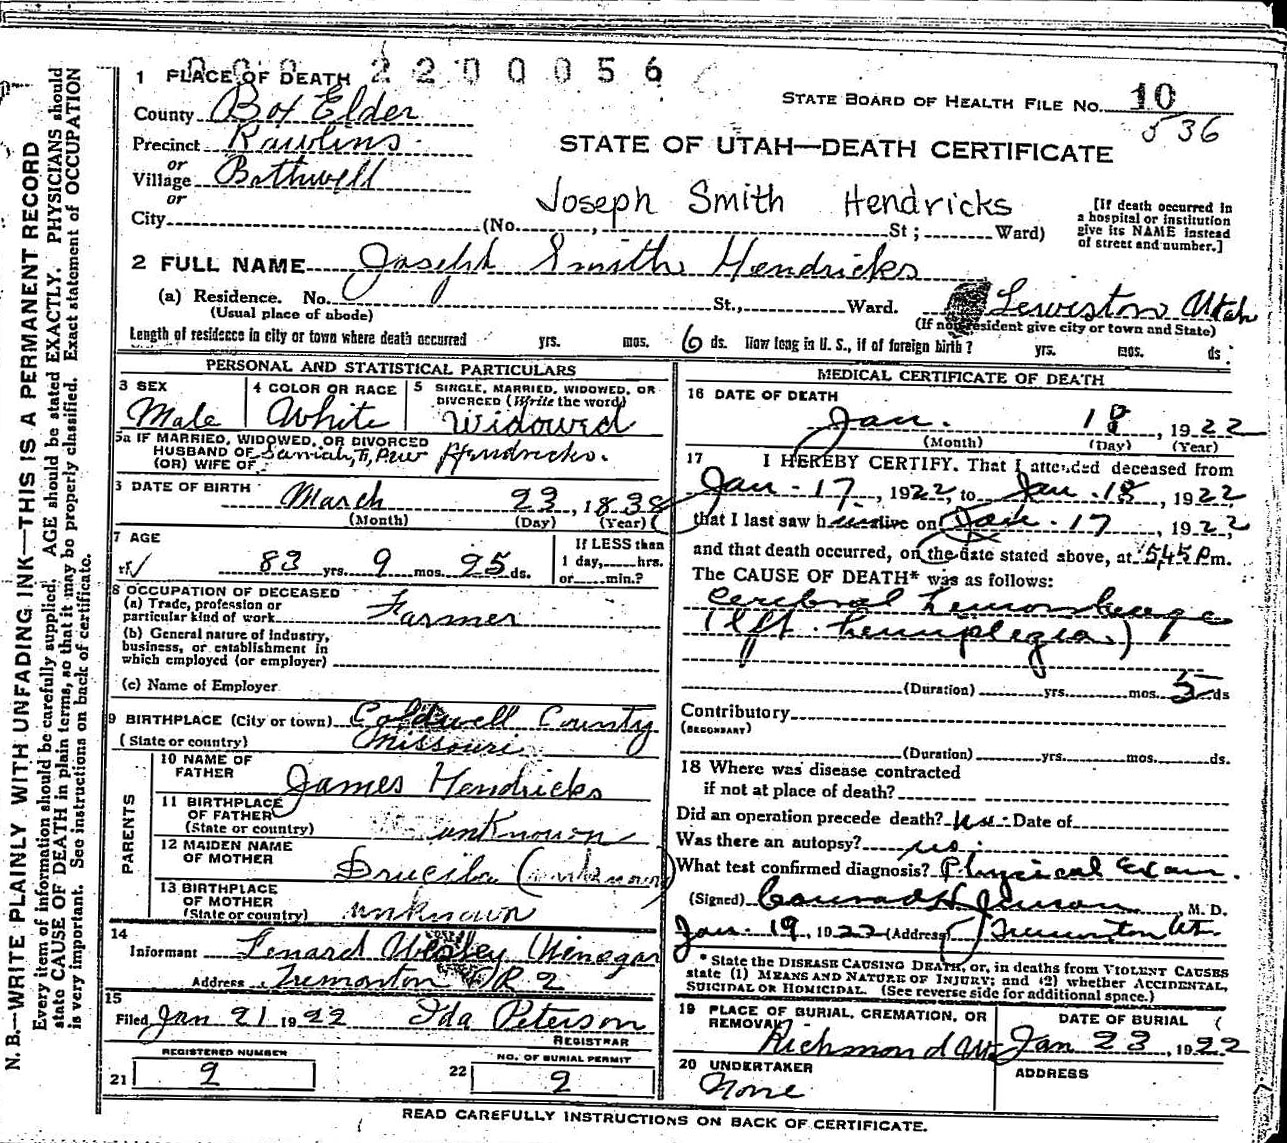 000 2200056
1 PLACE OF DEATH
STATE BOARD OF HEALTH FILE NO. 10
536
County Box Elder
Precinct Rawlins
or
Village Bothwell
or
STATE OF UTAH—DEATH CERTIFICATE
Joseph Smith Hendricks
City (No. , St ; Ward)
[If death occurred in
a hospital or institution
give its NAME instead
of street and number.]
2 FULL NAME Joseph Smith Hendricks
(a) Residence. No. St., Ward. Lewiston Utah
(Usual place of abode)
(If non resident give city or town and State)
Length of residence in city or town where death occurred yrs. mos. 6 ds. How long in U. S., if of foreign birth? yrs. mos. ds.
PERSONAL AND STATISTICAL PARTICULARS
3 SEX
Male
4 COLOR OR RACE
White
5 SINGLE, MARRIED, WIDOWED, OR
DIVORCED (Write the word)
Widowed
5a IF MARRIED, WIDOWED, OR DIVORCED
HUSBAND OF Hendricks.
(OR) WIFE OF
6 DATE OF BIRTH
March 23, 1838
(Month) (Day) (Year)
7 AGE
83 yrs. 9 mos. 25 ds.
If LESS than
1 day, hrs.
or min.?
8 OCCUPATION OF DECEASED
(a) Trade, profession or
particular kind of work Farmer
(b) General nature of Industry,
business, or establishment in
which employed (or employer)
(c) Name of Employer
9 BIRTHPLACE (City or town) Coldwell County
(State or country) Missouri
PARENTS
10 NAME OF
FATHER James Hendricks
11 BIRTHPLACE
OF FATHER
(State or country) unknown
12 MAIDEN NAME
OF MOTHER Drucila (unknown)
13 BIRTHPLACE
OF MOTHER
(State or country) unknown
14
Informant Lenard Wesley Winegar
Address Tremonton R 2
15
Filed Jan 21 1922 Ida Peterson
REGISTRAR
REGISTERED NUMBER
21 2
NO. OF BURIAL PERMIT
22 2
MEDICAL CERTIFICATE OF DEATH
16 DATE OF DEATH
Jan. 18, 1922
(Month) (Day) (Year)
17 I HEREBY CERTIFY. That I attended deceased from
Jan - 17, 1922, to Jan. 18, 1922,
that I last saw h alive on Jan - 17, 1922,
and that death occurred, on the date stated above, at 5,45 Pm.
The CAUSE OF DEATH* was as follows:
Cerebral hemorrhage
(left hemiplegia.)
(Duration) yrs. mos. 5 ds
Contributory
(SECONDARY)
(Duration) yrs. mos. ds.
18 Where was disease contracted
if not at place of death?
Did an operation precede death? no. Date of
Was there an autopsy? no.
What test confirmed diagnosis? Physical Exam.
(Signed) Conrad H Jenson M. D.
Jan. 19, 1922 (Address) Tremonton Ut.
* State the DISEASE CAUSING DEATH, or, in deaths from VIOLENT CAUSES
state (1) MEANS AND NATURE OF INJURY; and (2) whether ACCIDENTAL,
SUICIDAL OR HOMICIDAL. (See reverse side for additional space.)
19 PLACE OF BURIAL, CREMATION, OR
REMOVAL
Richmond
DATE OF BURIAL
Jan 23, 1922
20 UNDERTAKER
None
ADDRESS
READ CAREFULLY INSTRUCTIONS ON BACK OF CERTIFICATE.
N. B.—WRITE PLAINLY WITH UNFADING INK—THIS IS A PERMANENT RECORD
Every item of information should be carefully supplied. AGE should be stated EXACTLY. PHYSICIANS should
state CAUSE OF DEATH in plain terms, so that it may be properly classified. Exact statement of OCCUPATION
is very important. See instructions on back of certificate.